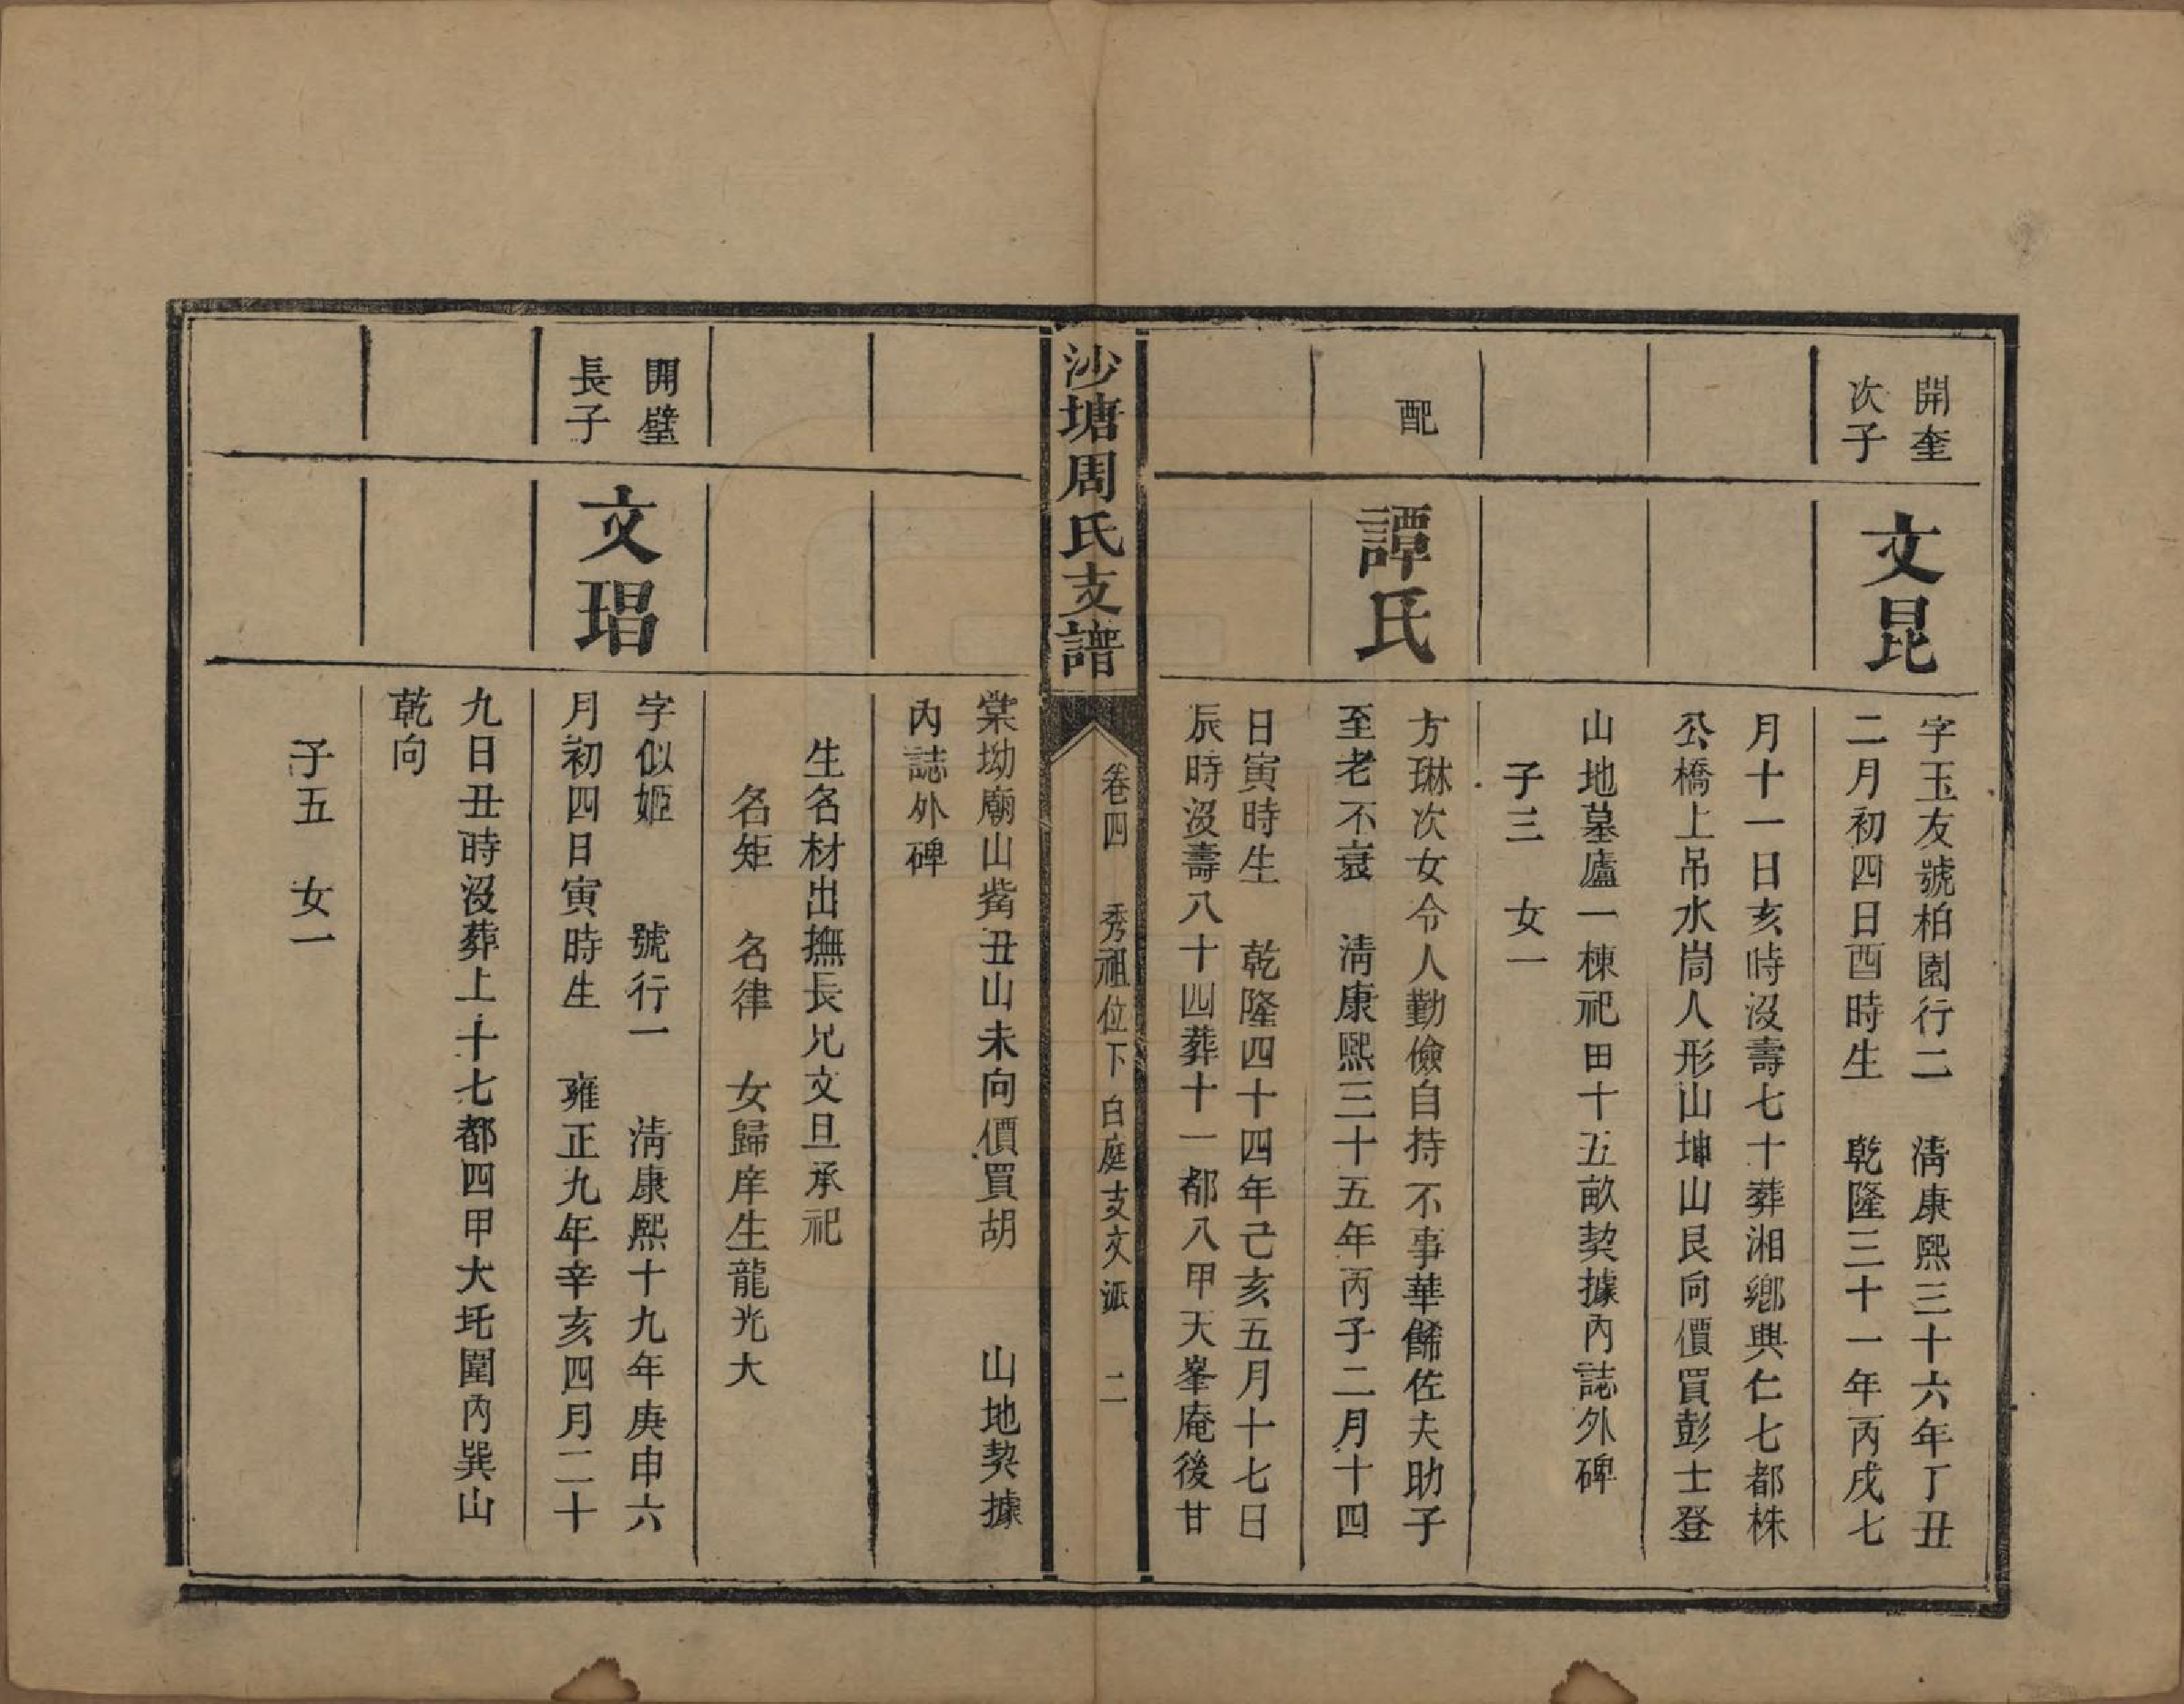 開奎
次子
文昆
字玉友號柏園行二　淸康熙三十六年丁丑
二月初四日酉時生　乾隆三十一年丙戌七
月十一日亥時沒壽七十葬湘鄉興仁七都株
公橋上吊水崗人形山坤山艮向價買彭士登
山地墓廬一棟祀田十五畝契據內誌外碑
子三　女一
配
譚氏
方琳次女令人勤儉自持不事華餙佐夫助子
至老不衰　淸康熙三十五年丙子二月十四
日寅時生　乾隆四十四年己亥五月十七日
辰時沒壽八十四葬十一都八甲天峯庵後甘
沙塘周氏支譜
卷四　秀祖位下白庭支文派　二
棠坳廟山觜丑山未向價買胡　　山地契據
內誌外碑
生名材出撫長兄文旦承祀
名矩　名律　女歸庠生龍光大
開璧
長子
文琩
字似姬　　號行一　淸康熙十九年庚申六
月初四日寅時生　雍正九年辛亥四月二十
九日丑時沒葬上十七都四甲大圫圍內巽山
乾向
子五　女一